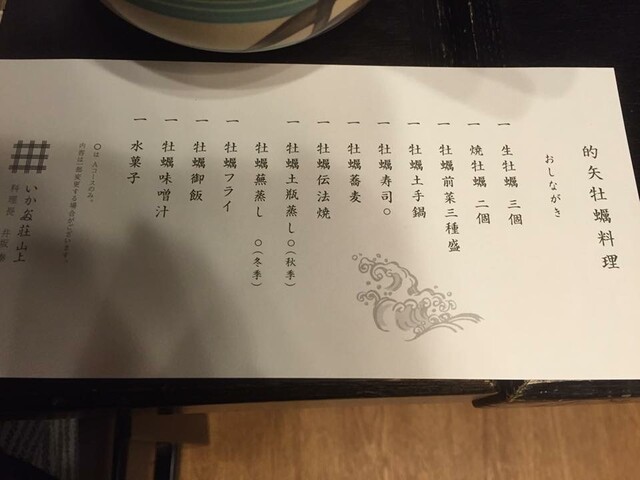 的矢牡蠣料理
おしながき
一 生牡蠣 三個
一 焼牡蠣 二個
一 牡蠣前菜三種盛
一 牡蠣土手鍋
一 牡蠣寿司○
一 牡蠣蕎麦
一 牡蠣伝法焼
一 牡蠣土瓶蒸し○(秋季)
牡蠣蕪蒸し ○(冬季)
一 牡蠣フライ
一 牡蠣御飯
一 牡蠣味噌汁
一 水菓子
○は Aコースのみ。
内容は一部変更する場合がございます。
いかだ荘山上
料理長 井坂